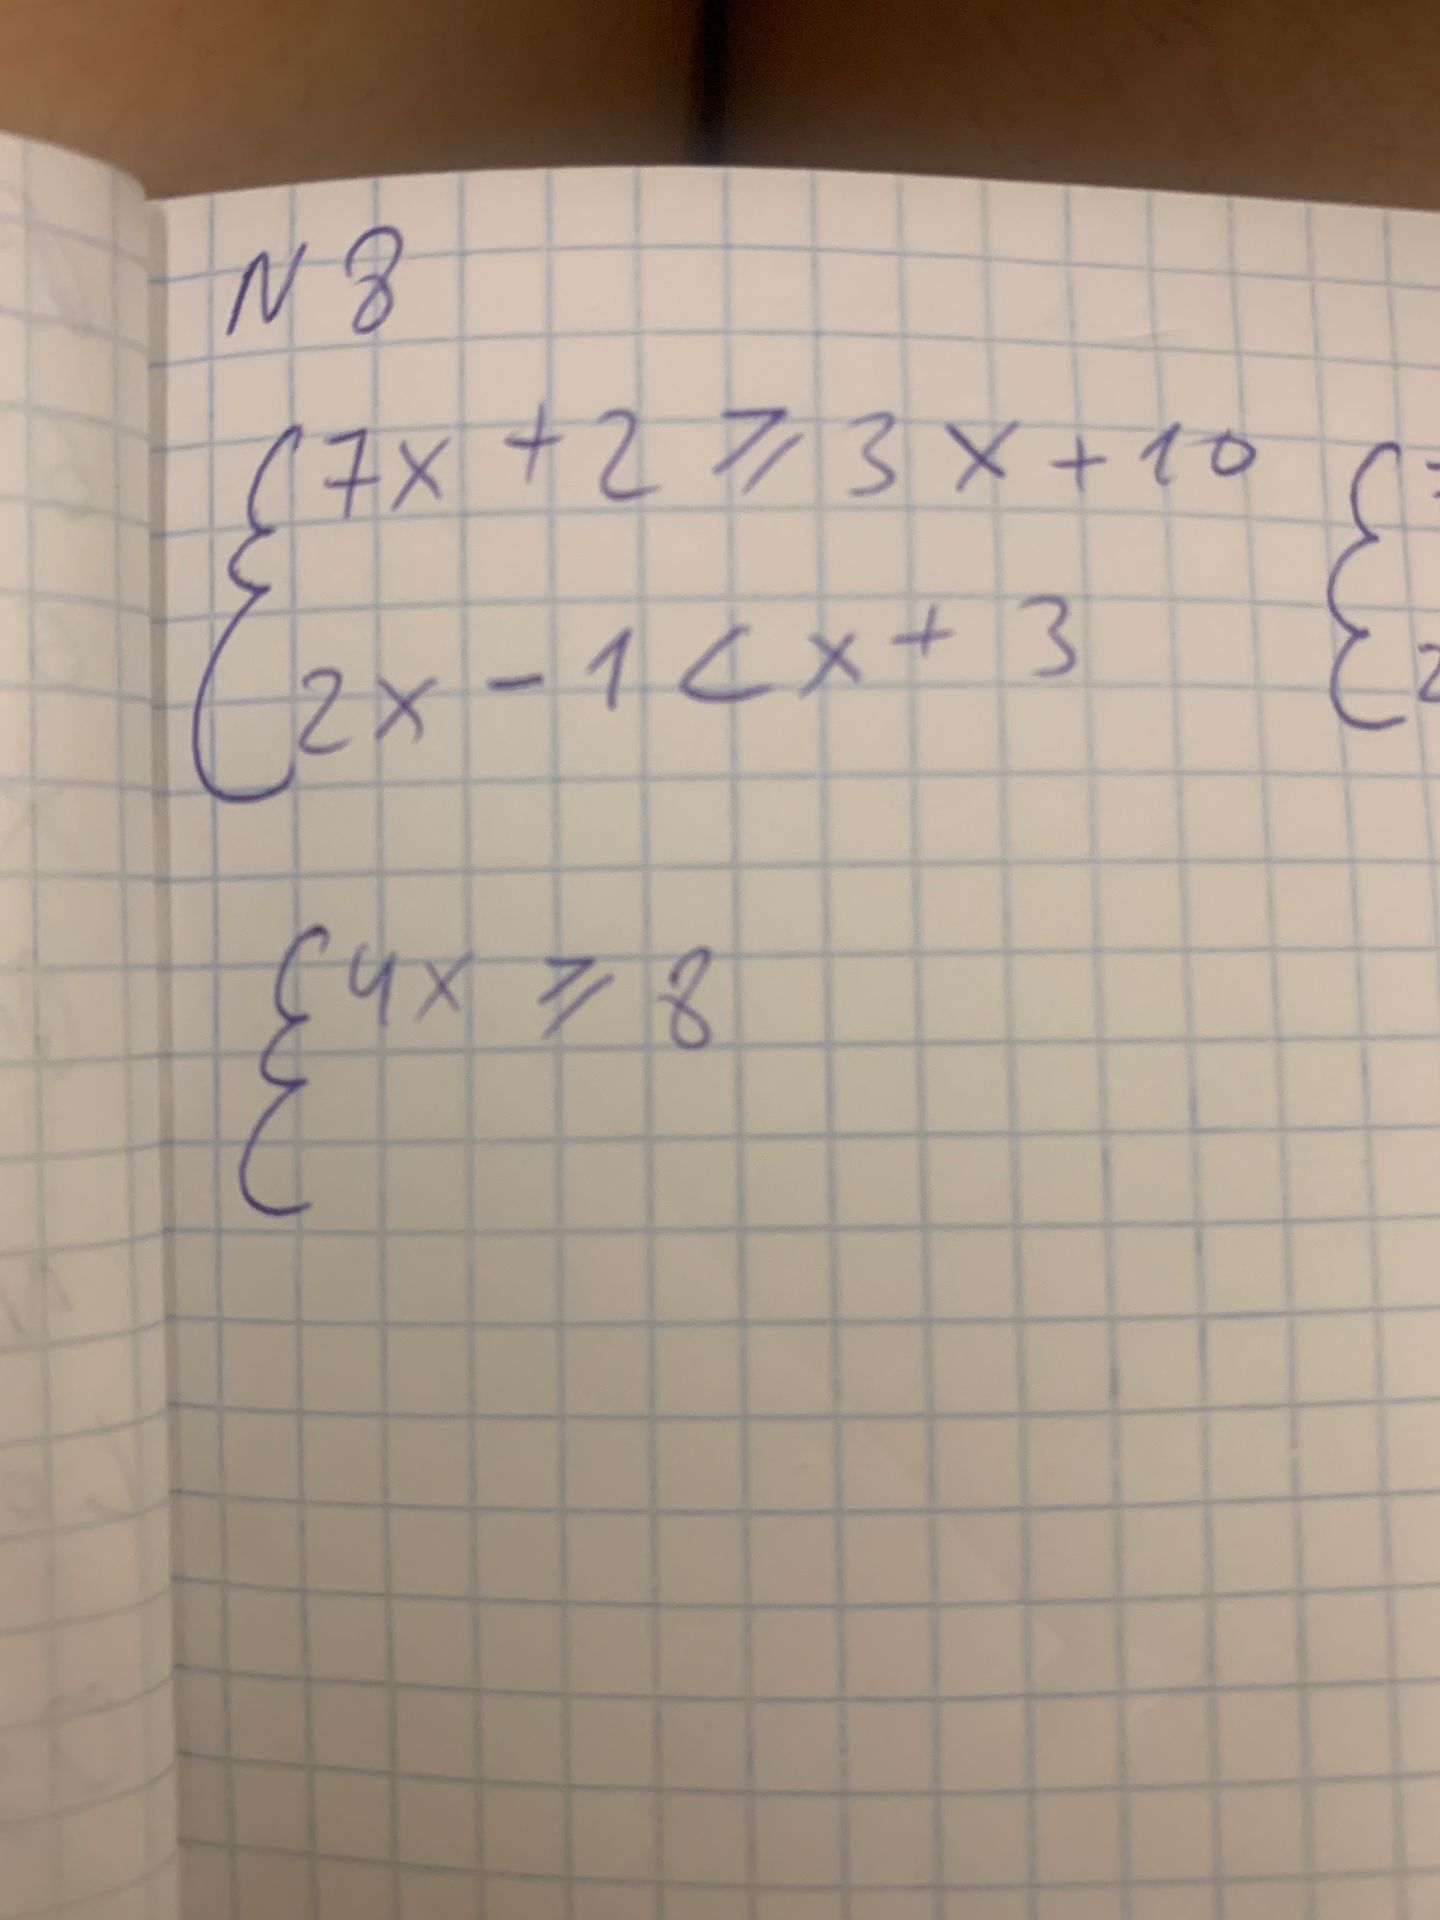 N 8
{ 7x + 2 ⩾ 3x + 10 {
2x - 1 < x + 3 2
{ 4x ⩾ 8